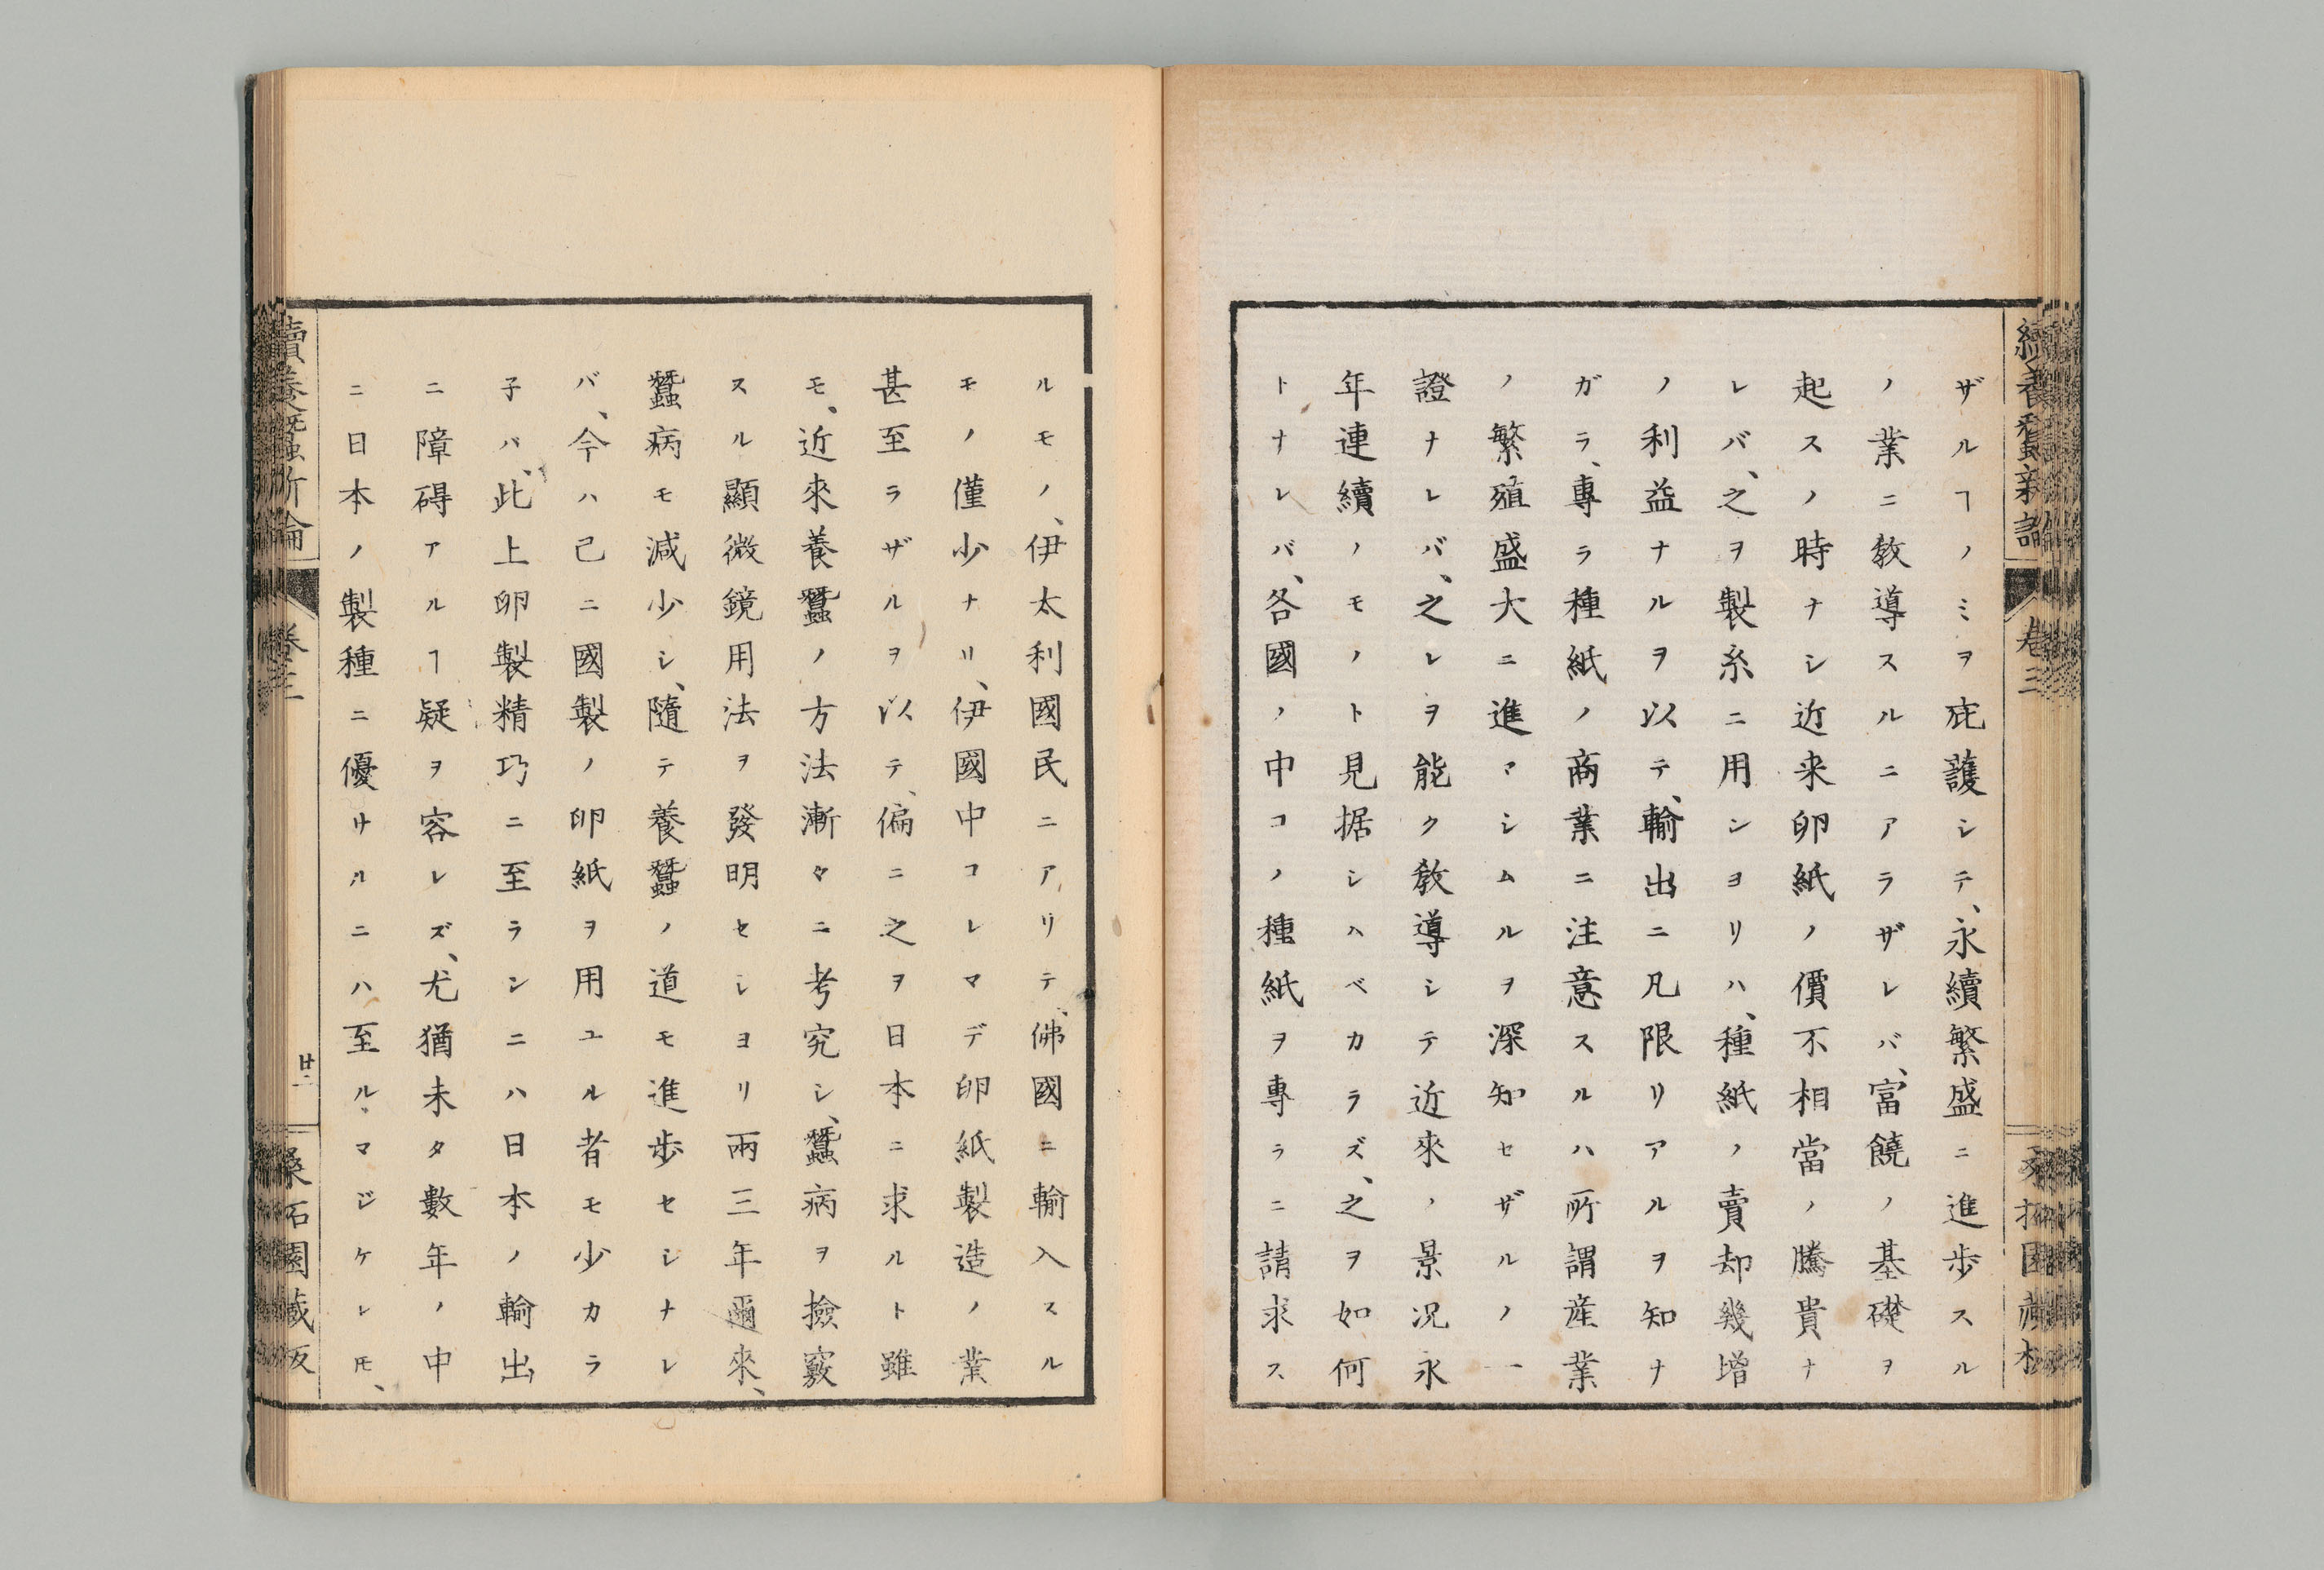 ザルヿノミヲ庇護シテ、永續繁盛ニ進歩スル
ノ業ニ教導スルニアラザレバ、富饒ノ基礎ヲ
起スノ時ナシ近来卵紙ノ價不相當ノ騰貴ナ
レバ、之ヲ製糸ニ用ンヨリハ、種紙ノ賣却幾増
ノ利益ナルヲ以テ、輸出ニ凡限リアルヲ知ナ
ガラ、專ラ種紙ノ商業ニ注意スルハ所謂産業
ノ繁殖盛大ニ進マシムルヲ深知セザルノ一
證ナレバ、之レヲ能ク教導シテ近來ノ景況永
年連續ノモノト見据シハベカラズ、之ヲ如何
トナレバ、各國ノ中コノ種紙ヲ專ラニ請求ス
ルモノ、伊太利國民ニアリテ、佛國ニ輸入スル
モノ僅少ナリ、伊國中コレマデ卵紙製造ノ業
甚至ラザルヲ以テ、偏ニ之ヲ日本ニ求ルト雖
モ、近來養蠶ノ方法漸々ニ考究シ、蠶病ヲ撿竅
スル顯微鏡用法ヲ發明セシヨリ兩三年爾來、
蠶病モ減少シ、隨テ養蠶ノ道モ進歩セシナレ
バ、今ハ己ニ國製ノ卵紙ヲ用ユル者モ少カラ
子バ、此上卵製精巧ニ至ランニハ日本ノ輸出
ニ障碍アルヿ疑ヲ容レズ、尤猶未タ數年ノ中
ニ日本ノ製種ニ優サルニハ至ルマジケレ𪜈、
續養蠶新論
卷三
廿二
桑柘園藏板